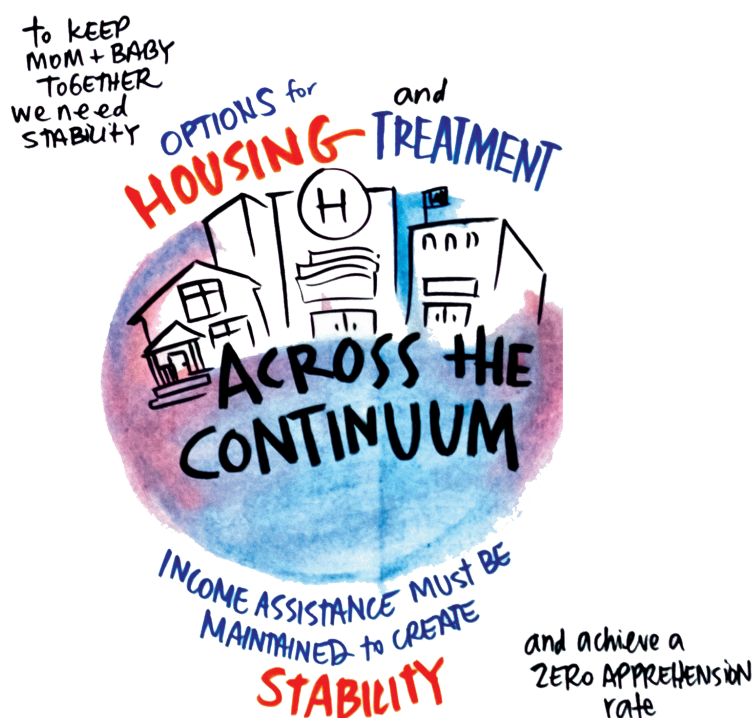 to KEEP
MOM + BABY
TOGETHER
we need
STABILITY
OPTIONS for
HOUSING
and
TREATMENT
H
ACROSS tHE
CONTINUUM
INCOME ASSISTANCE MUSt BE
MAINTAINED to CREATE
STABILITY
and achieve a
ZERO APPREHENSION
rate